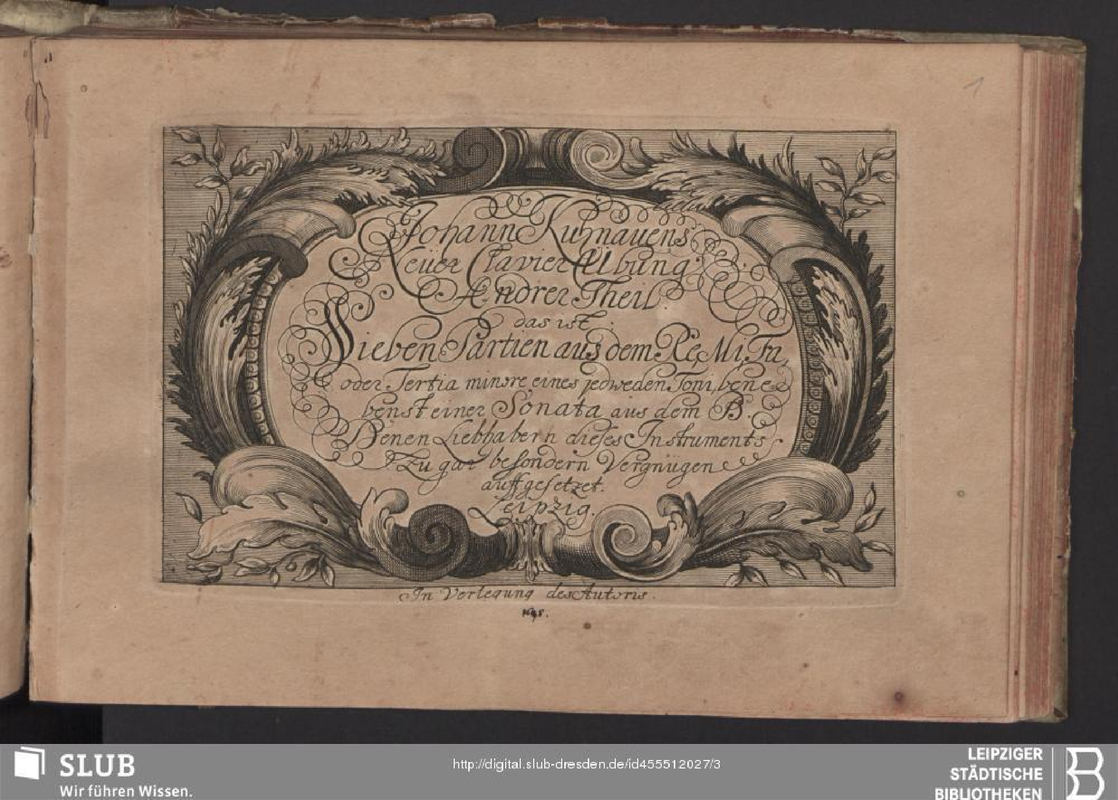 1
Johann Kuhnauens
Neuer Clavier Ubung
Andrer Theil
das ist:
Sieben Partien aus dem Re, Mi, Fa,
oder Tertia minore eines jedweden Toni, bene
benst einer Sonata aus dem B.
Denen Liebhabern dieses Instruments
zu gar besondern Vergnügen
auffgesetzet.
Leipzig.
In Verlegung des Autoris.
SLUB
Wir führen Wissen.
http://digital.slub-dresden.de/id455512027/3
LEIPZIGER
STÄDTISCHE
BIBLIOTHEKEN